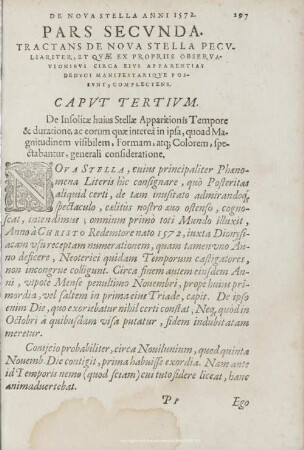 DE NOVA STELLA ANNI 1572. 297
PARS SECVNDA.
TRACTANS DE NOVA STELLA PECV-
LIARITER, ET QVÆ EX PROPRIIS OBSERVA-
TIONIBVS CIRCA EIVS APPARENTIAS
DEDVCI MANIFESTARIQVE POS-
SVNT, COMPLECTENS.
CAPVT TERTIVM.
De Insolitæ huius Stellæ Apparitionis Tempore
& duratione, ac eorum quæ interea in ipsa, quoad Ma-
gnitudinem visibilem, Formam, atq; Colorem, spe-
ctabantur, generali consideratione.
NOVA STELLA, cuius principaliter Phæno-
mena Literis hic consignare, quò Posteritas
aliquid certi, de tam inusitato admirandoq;
spectaculo, cælitus nostro æuo ostenso, cognos-
cat, intendimus, omnium primo toti Mundo illuxit,
Anno à CHRISTO Redemtore nato 1572, iuxta Dionysi-
acam vsu receptam numerationem, quam tamen vno An-
no deficere, Neoterici quidam Temporum castigatores,
non incongrue coligunt. Circa finem autem eiusdem An-
ni, vipote Mense penultimo Nouembri, prope huius pri-
mordia, vel saltem in prima eius Triade, cæpit. De ipso
enim Die, quo exoriebatur nihil certi constat, Neq; quod in
Octobri à quibusdam visa putatur, fidem indubitatam
meretur.
Conijcio probabiliter, circa Nouilunium, quod quinta
Nouemb. Die contigit, prima habuisse exordia. Nam ante
id Temporis nemo (quod sciam) cui tuto fidere liceat, hanc
animaduertebat.
Pp Ego